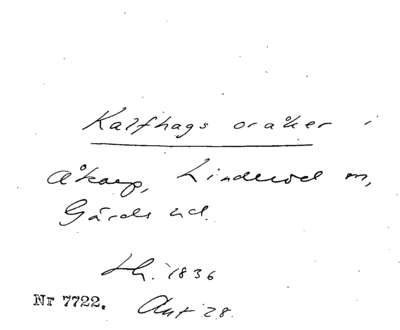 Kalfhags oråker i
Åkarp, Linderöd sn,
Gärds hd.
Lh. 1836
Nr 7722. Akt 28.